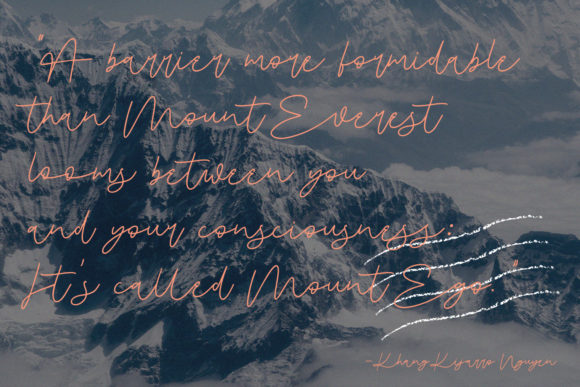 "A barrier more formidable
than Mount Everest
looms between you
and your consciousness:
It's called Mount Ego."
-Khang Kijarro Nguyen